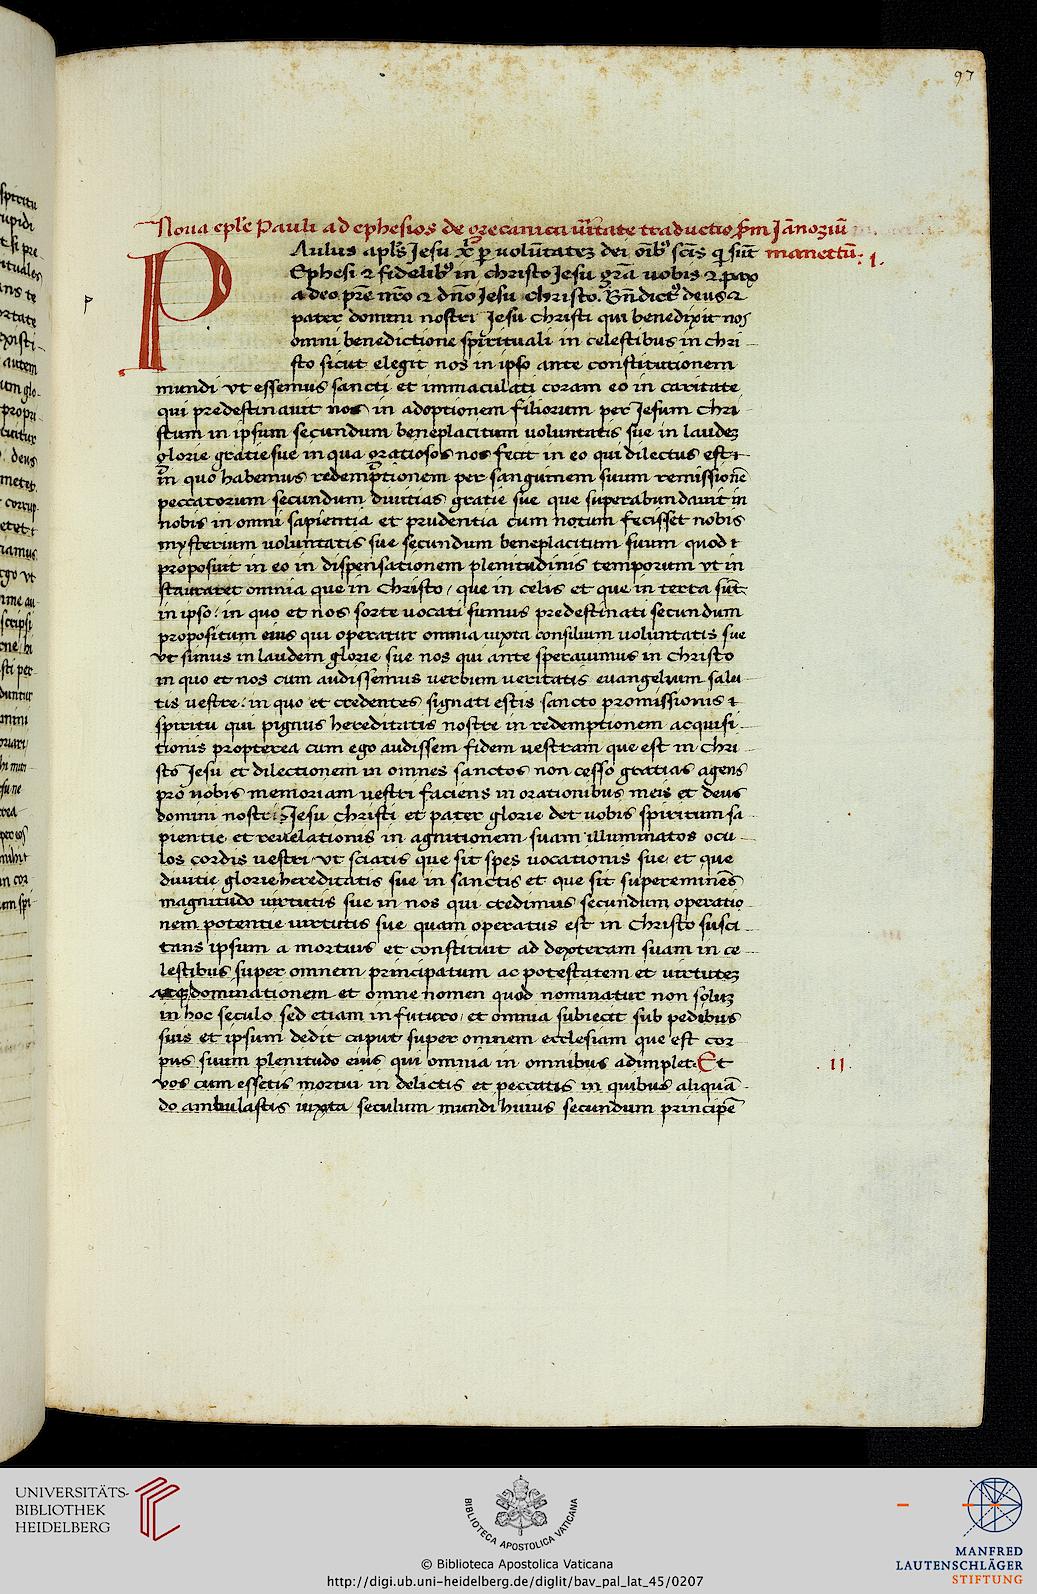 97
Noua epl'e Pauli ad ephesios de grecanica ūitate traductio p̄m Jānoziū
Aulus apl's Jesu x̄ p̱ uolūtateʒ dei oībꝰ sc̄is q̱ sūt manettū: .1.
Ephesi ⁊ fidelibꝰ in christo Jesu gr̄a uobis ⁊ pax
a deo pr̄e nr̄o ⁊ dn̄o Jesu christo. Bn̄dictꝰ deus ⁊
pater domini nostri Jesu christi qui benedixit nos
omni benedictione spirituali in celestibus in chri
sto sicut elegit nos in ipso ante constitutionem
P
mundi vt essemus sancti et immaculati coram eo in caritate
qui predestinauit nos in adoptionem filiorum per Jesum chri
stum in ipsum secundum beneplacitum uoluntatis sue in laudeʒ
glorie gratie sue in qua gratiosos nos fecit in eo qui dilectus est
in quo habemus redemptionem per sanguinem suum remissionē
peccatorum secundum diuitias gratie sue que superabundauit in
nobis in omni sapientia et prudentia cum notum fecisset nobis
mysterium uoluntatis sue secundum beneplacitum suum quod
proposuit in eo in dispensationem plenitudinis temporum vt in
stauraret omnia que in christo / que in celis et que in terra sūt
in ipso: in quo et nos sorte uocati sumus predestinati secundum
propositum eius qui operatur omnia iuxta consilium uoluntatis sue
vt simus in laudem glorie sue nos qui ante sperauimus in christo
in quo et nos cum audissemus uerbum ueritatis euangelium salu
tis uestre: in quo et credentes signati estis sancto promissionis
spiritu qui pignus hereditatis nostre in redemptionem acquisi
tionis propterea cum ego audissem fidem uestram que est in chri
sto Jesu et dilectionem in omnes sanctos non cesso gratias agens
pro uobis memoriam uestri faciens in orationibus meis et deus
domini nostri Jesu christi et pater glorie det uobis spiritum sa
pientie et reuelationis in agnitionem suam illuminatos ocu
los cordis uestri vt sciatis que sit spes uocationis sue et que
diuitie glorie hereditatis sue in sanctis et que sit supereminēs
magnitudo uirtutis sue in nos qui credimus secundum operatio
nem potentie uirtutis sue quam operatus est in christo susci
tans ipsum a mortuis et constituit ad dexteram suam in ce
lestibus super omnem principatum ac potestatem et uirtuteʒ
atqꝫ dominationem et omne nomen quod nominatur non soluʒ
in hoc seculo sed etiam in futuro et omnia subiecit sub pedibus
suis et ipsum dedit caput super omnem ecclesiam que est cor
pus suum plenitudo eius qui omnia in omnibus adimplet. Et .11.
vos cum essetis mortui in delictis et peccatis in quibus aliquā
do ambulastis iuxta seculum mundi huius secundum principē
UNIVERSITÄTS-
BIBLIOTHEK
HEIDELBERG
BIBLIOTECA APOSTOLICA VATICANA
MANFRED
LAUTENSCHLÄGER
STIFTUNG
© Biblioteca Apostolica Vaticana
http://digi.ub.uni-heidelberg.de/diglit/bav_pal_lat_45/0207